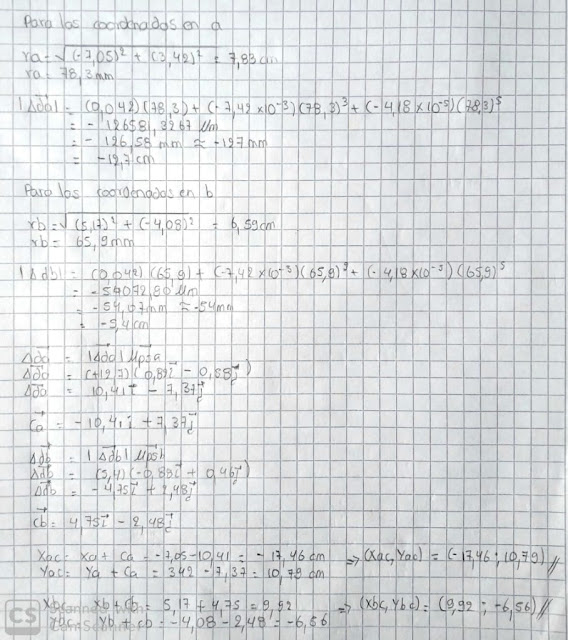 Para las coordenadas en a
ra = √(-7,05)² + (3,42)² = 7,83 cm
ra = 78,3 mm
|Δda| = (0,042)(78,3) + (-7,42 x10⁻³)(78,3)³ + (-4,18 x10⁻⁵)(78,3)⁵
= - 126581,3267 μm
= - 126,58 mm ≈ -127 mm
= -12,7 cm
Para las coordenadas en b
rb = √(5,17)² + (-4,08)² = 6,59 cm
rb = 65,9 mm
|Δdb| = (0,042)(65,9) + (-7,42 x10⁻³)(65,9)³ + (-4,18 x10⁻⁵)(65,9)⁵
= -54072,80 μm
= -54,07 mm ≈ -54 mm
= -5,4 cm
Δda = |Δda| μpsa
Δda = (+12,7)(0,82i - 0,58j)
Δda = 10,41i - 7,37j
Ca = -10,41i + 7,37j
Δdb = |Δdb| μpsb
Δdb = (5,4)(-0,88i + 0,46j)
Δdb = -4,75i + 2,48j
Cb = 4,75i - 2,48j
Xac = Xa + Ca = -7,05 -10,41 = -17,46 cm ⇒ (Xac, Yac) = (-17,46 ; 10,79)//
Yac = Ya + Ca = 3,42 - 7,37 = 10,79 cm
Xbc = Xb + Cb = 5,17 + 4,75 = 9,92 ⇒ (Xbc, Ybc) = (9,92 ; -6,56)//
Ybc = Yb + cb = -4,08 - 2,48 = -6,56
CS CamScanner